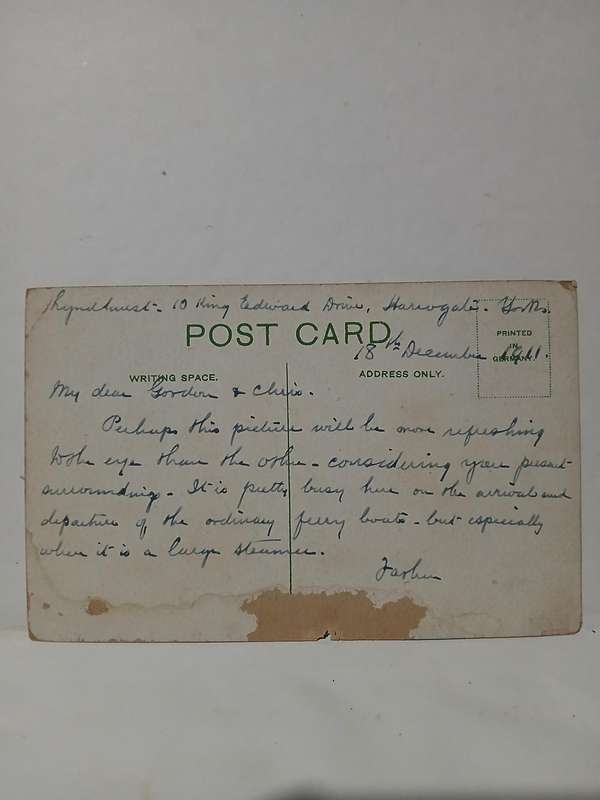 Lyndhurst - 10 King Edward Drive, Harrogate - Yorks.
POST CARD
PRINTED
IN
GERMANY.
18th December 1911.
WRITING SPACE.
ADDRESS ONLY.
My dear Gordon & Chris.
Perhaps this picture will be more refreshing
to the eye than the other - considering your present
surroundings - It is pretty busy here on the arrival and
departure of the ordinary ferry boats - but especially
when it is a large steamer.
Father